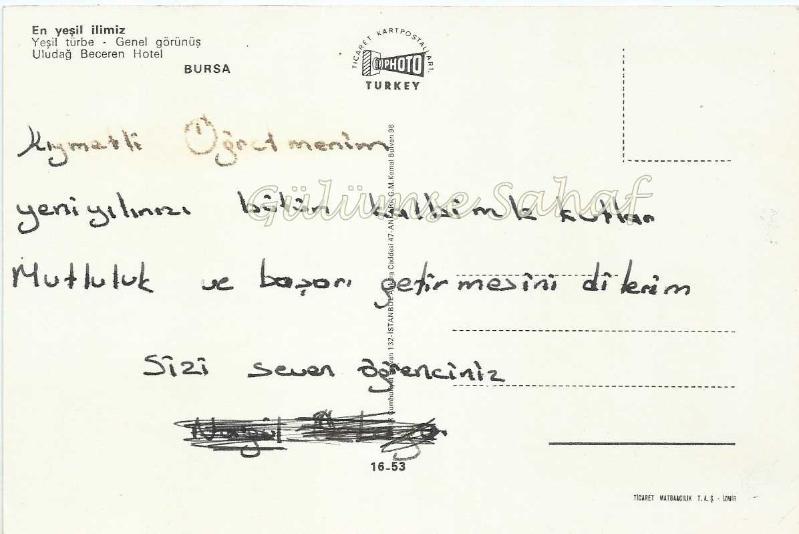 En yeşil ilimiz
Yeşil türbe - Genel görünüş
Uludağ Beceren Hotel
BURSA
TİCARET KARTPOSTALLARI
PHOTO
TURKEY
Kıymetli Öğretmenim
yeni yılınızı bütün kalbimle kutlar
Mutluluk ve başarı getirmesini dilerim
Sizi seven öğrenciniz
Gülümse Sahaf
132-İSTANBUL Caddesi 47. ANKARA G.M.Kemal Bulvarı 98
16-53
TİCARET MATBAACILIK T.A.Ş. - İZMİR